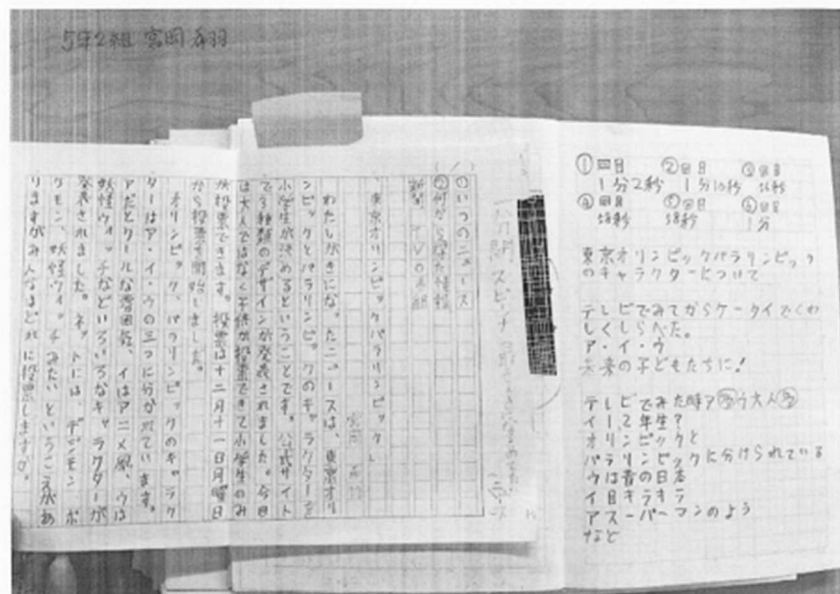 5年2組 宮岡
①いつのニュース
②何から得た情報
新聞 TVの
一分間スピーチ
「東京オリンピックパラリンピック」
宮岡
わたしが気になったニュースは、東京オリ
ンピックとパラリンピックのキャラクターを
小学生が決めるということです。公式サイト
で3種類のデザインが発表されました。今日
は大人ではなく子供が投票できて小学生のみ
が投票できます。投票は十二月十一日月曜日
から投票を開始しました。
オリンピック、パラリンピックのキャラク
ターはア・イ・ウの三つに分かれています。
アだとクールな雰囲気、イはアニメ風、ウは
妖怪ウォッチなどいろいろなキャラクターが
発表されました。ネットには、デジモン、ポ
ケモン、妖怪ウォッチみたいというこえがあ
りますがみんなはどれに投票しますか。
①回目 ②回目 ③回目
1分2秒 1分10秒 56秒
④回目 ⑤回目 ⑥回目
58秒 58秒 1分
東京オリンピックパラリンピック
のキャラクターについて
テレビでみてからケータイでくわ
しくしらべた。
ア・イ・ウ
未来の子どもたちに!
テレビでみた時ア ウ大人
イ1 2年生?
オリンピックと
パラリンピックに分けられている
ウは昔の日本
イ目キラキラ
アスーパーマンのよう
など